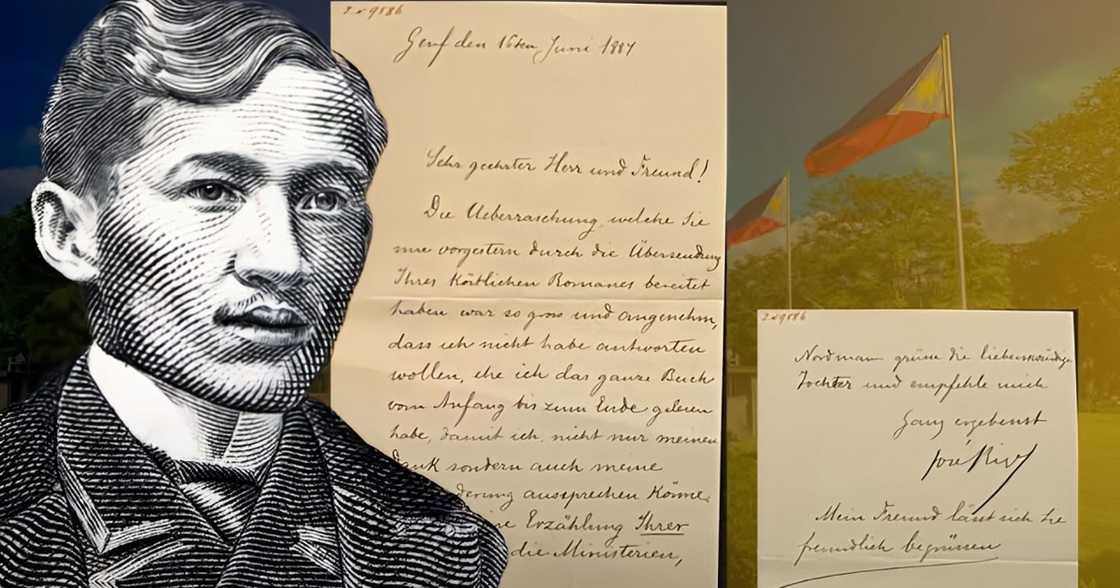 Genf den 16ten Juni 1887
Sehr geehrter Herr und Freund!
Die Ueberraschung welche Sie
mir vorgestern durch die Übersendung
Ihres köstlichen Romanes bereitet
haben war so gross und angenehm,
dass ich nicht habe antworten
wollen, ehe ich das ganze Buch
vom Anfang bis zum Ende gelesen
habe, damit ich nicht nur meinen
Dank sondern auch meine
aussprechen könne.
Erzählung Ihrer
die Ministerien,
grüsse die liebenswürdige
Tochter und empfehle mich
Ganz ergebenst
José Rizal
Mein Freund lässt sich Sie
freundlich begrüssen